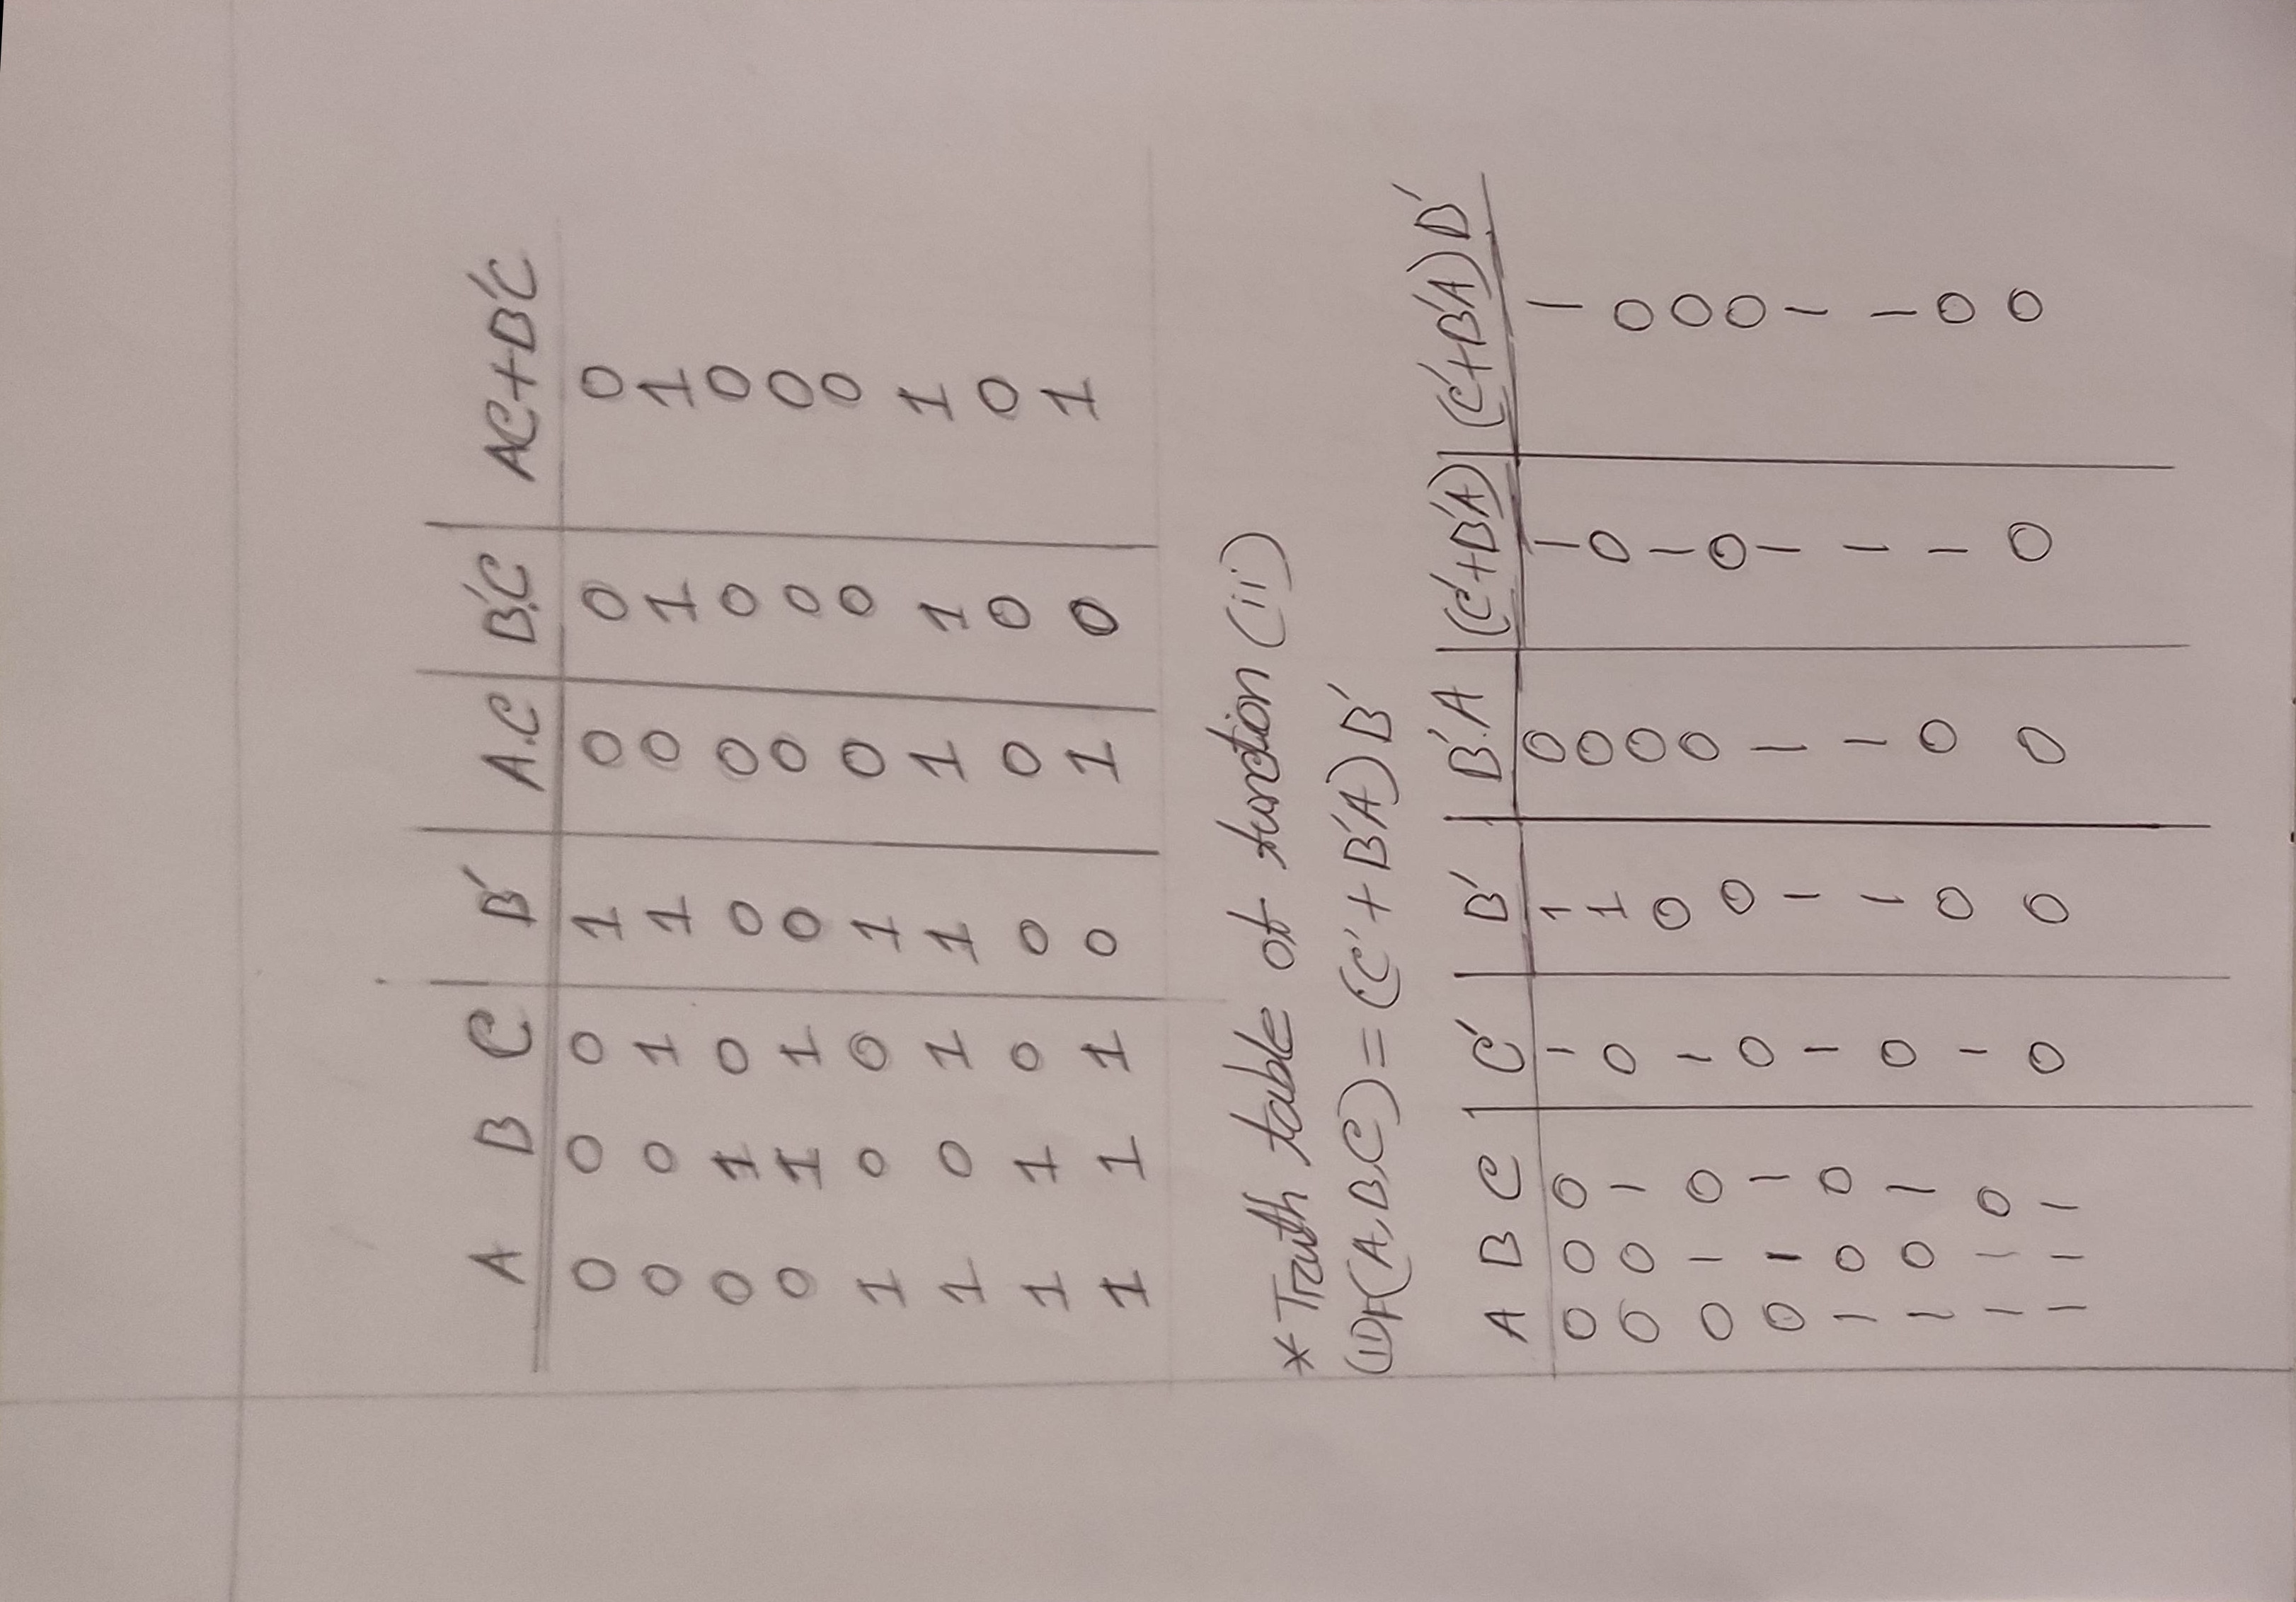 A B C B′ A.C B′.C AC+B′C
0 0 0 1 0 0 0
0 0 1 1 0 1 1
0 1 0 0 0 0 0
0 1 1 0 0 0 0
1 0 0 1 0 0 0
1 0 1 1 1 1 1
1 1 0 0 0 0 0
1 1 1 0 1 0 1
*Truth table of function (ii)
(ii)F(A,B,C) = (C′ + B′A) B′
A B C C′ B′ B′.A (C′+B′A) (C′+B′A) B′
0 0 0 1 1 0 1 1
0 0 1 0 1 0 0 0
0 1 0 1 0 0 1 0
0 1 1 0 0 0 0 0
1 0 0 1 1 1 1 1
1 0 1 0 1 1 1 1
1 1 0 1 0 0 1 0
1 1 1 0 0 0 0 0